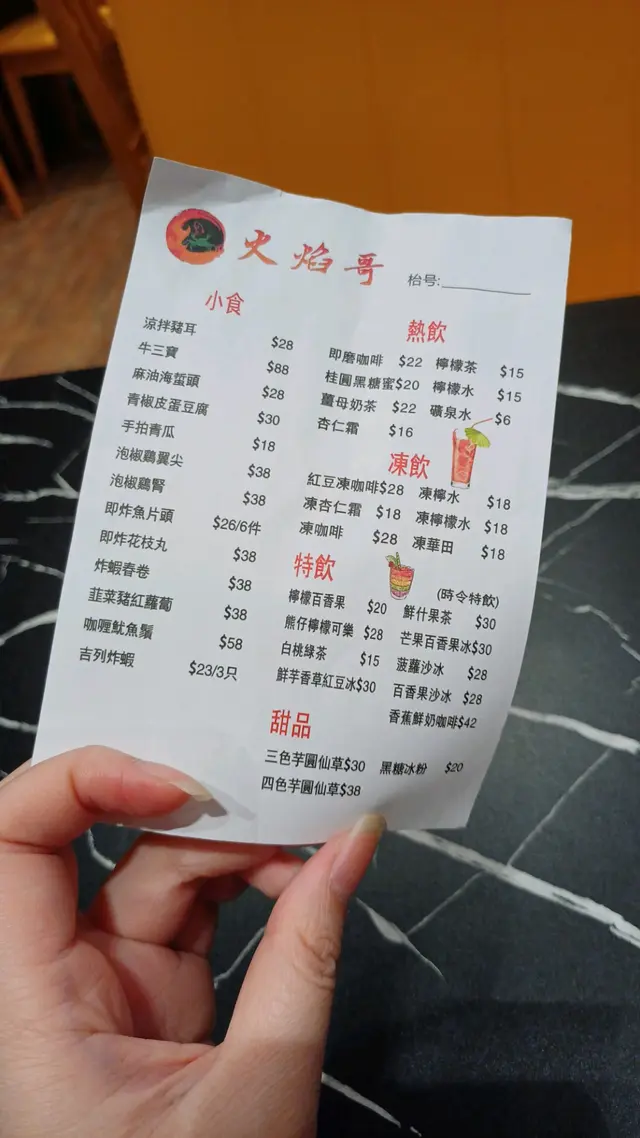 火焰哥
枱号:
小食
涼拌豬耳 $28
牛三寶 $88
麻油海蜇頭 $28
青椒皮蛋豆腐 $30
手拍青瓜 $18
泡椒鷄翼尖 $38
泡椒鷄腎 $38
即炸魚片頭 $26/6件
即炸花枝丸 $38
炸蝦春卷 $38
韮菜豬紅蘿蔔 $38
咖喱魷魚鬚 $58
吉列炸蝦 $23/3只
熱飲
即磨咖啡 $22 檸檬茶 $15
桂圓黑糖蜜$20 檸檬水 $15
薑母奶茶 $22 礦泉水 $6
杏仁霜 $16
凍飲
紅豆凍咖啡$28 凍檸水 $18
凍杏仁霜 $18 凍檸檬水 $18
凍咖啡 $28 凍華田 $18
特飲
(時令特飲)
檸檬百香果 $20 鮮什果茶 $30
熊仔檸檬可樂 $28 芒果百香果冰$30
白桃綠茶 $15 菠蘿沙冰 $28
鮮芋香草紅豆冰$30 百香果沙冰 $28
香蕉鮮奶咖啡$42
甜品
三色芋圓仙草$30 黑糖冰粉 $20
四色芋圓仙草$38